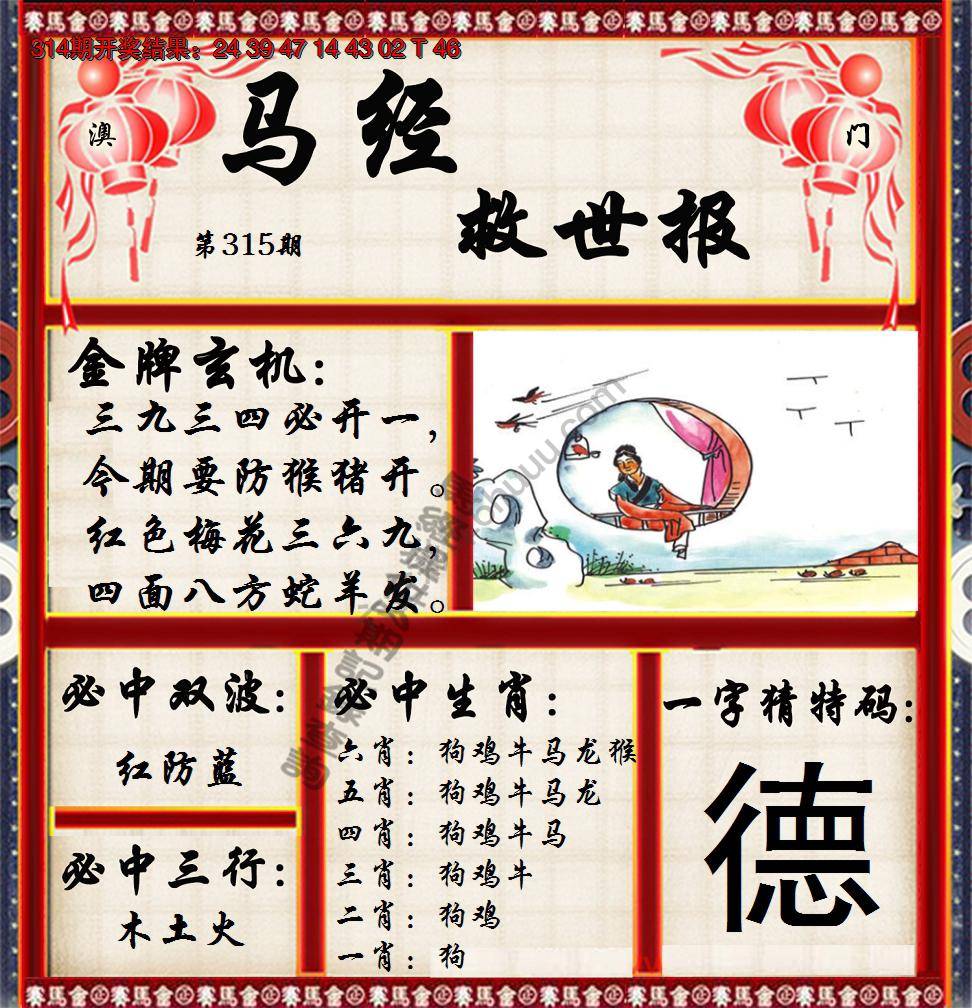 314期开奖结果：24 39 47 14 43 02 T 46
澳
门
马经
救世报
第315期
金牌玄机：
三九三四必开一，
今期要防猴猪开。
红色梅花三六九，
四面八方蛇羊发。
必中双波：
红防蓝
必中三行：
木土火
必中生肖：
六肖：狗鸡牛马龙猴
五肖：狗鸡牛马龙
四肖：狗鸡牛马
三肖：狗鸡牛
二肖：狗鸡
一肖：狗
一字猜特码：
德